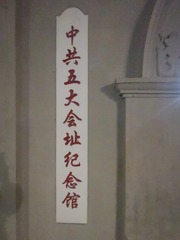 中共五大会址纪念馆